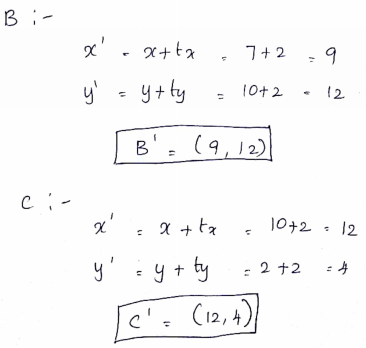 B :-
x' = x+tx = 7+2 = 9
y' = y+ty = 10+2 = 12
B' = (9, 12)
C :-
x' = x + tx = 10+2 = 12
y' = y + ty = 2+2 = 4
C' = (12, 4)